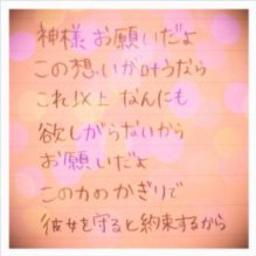 神様お願いだよ
この想いが叶うなら
これ以上なんにも
欲しがらないから
お願いだよ
この力のかぎりで
彼女を守ると約束するから